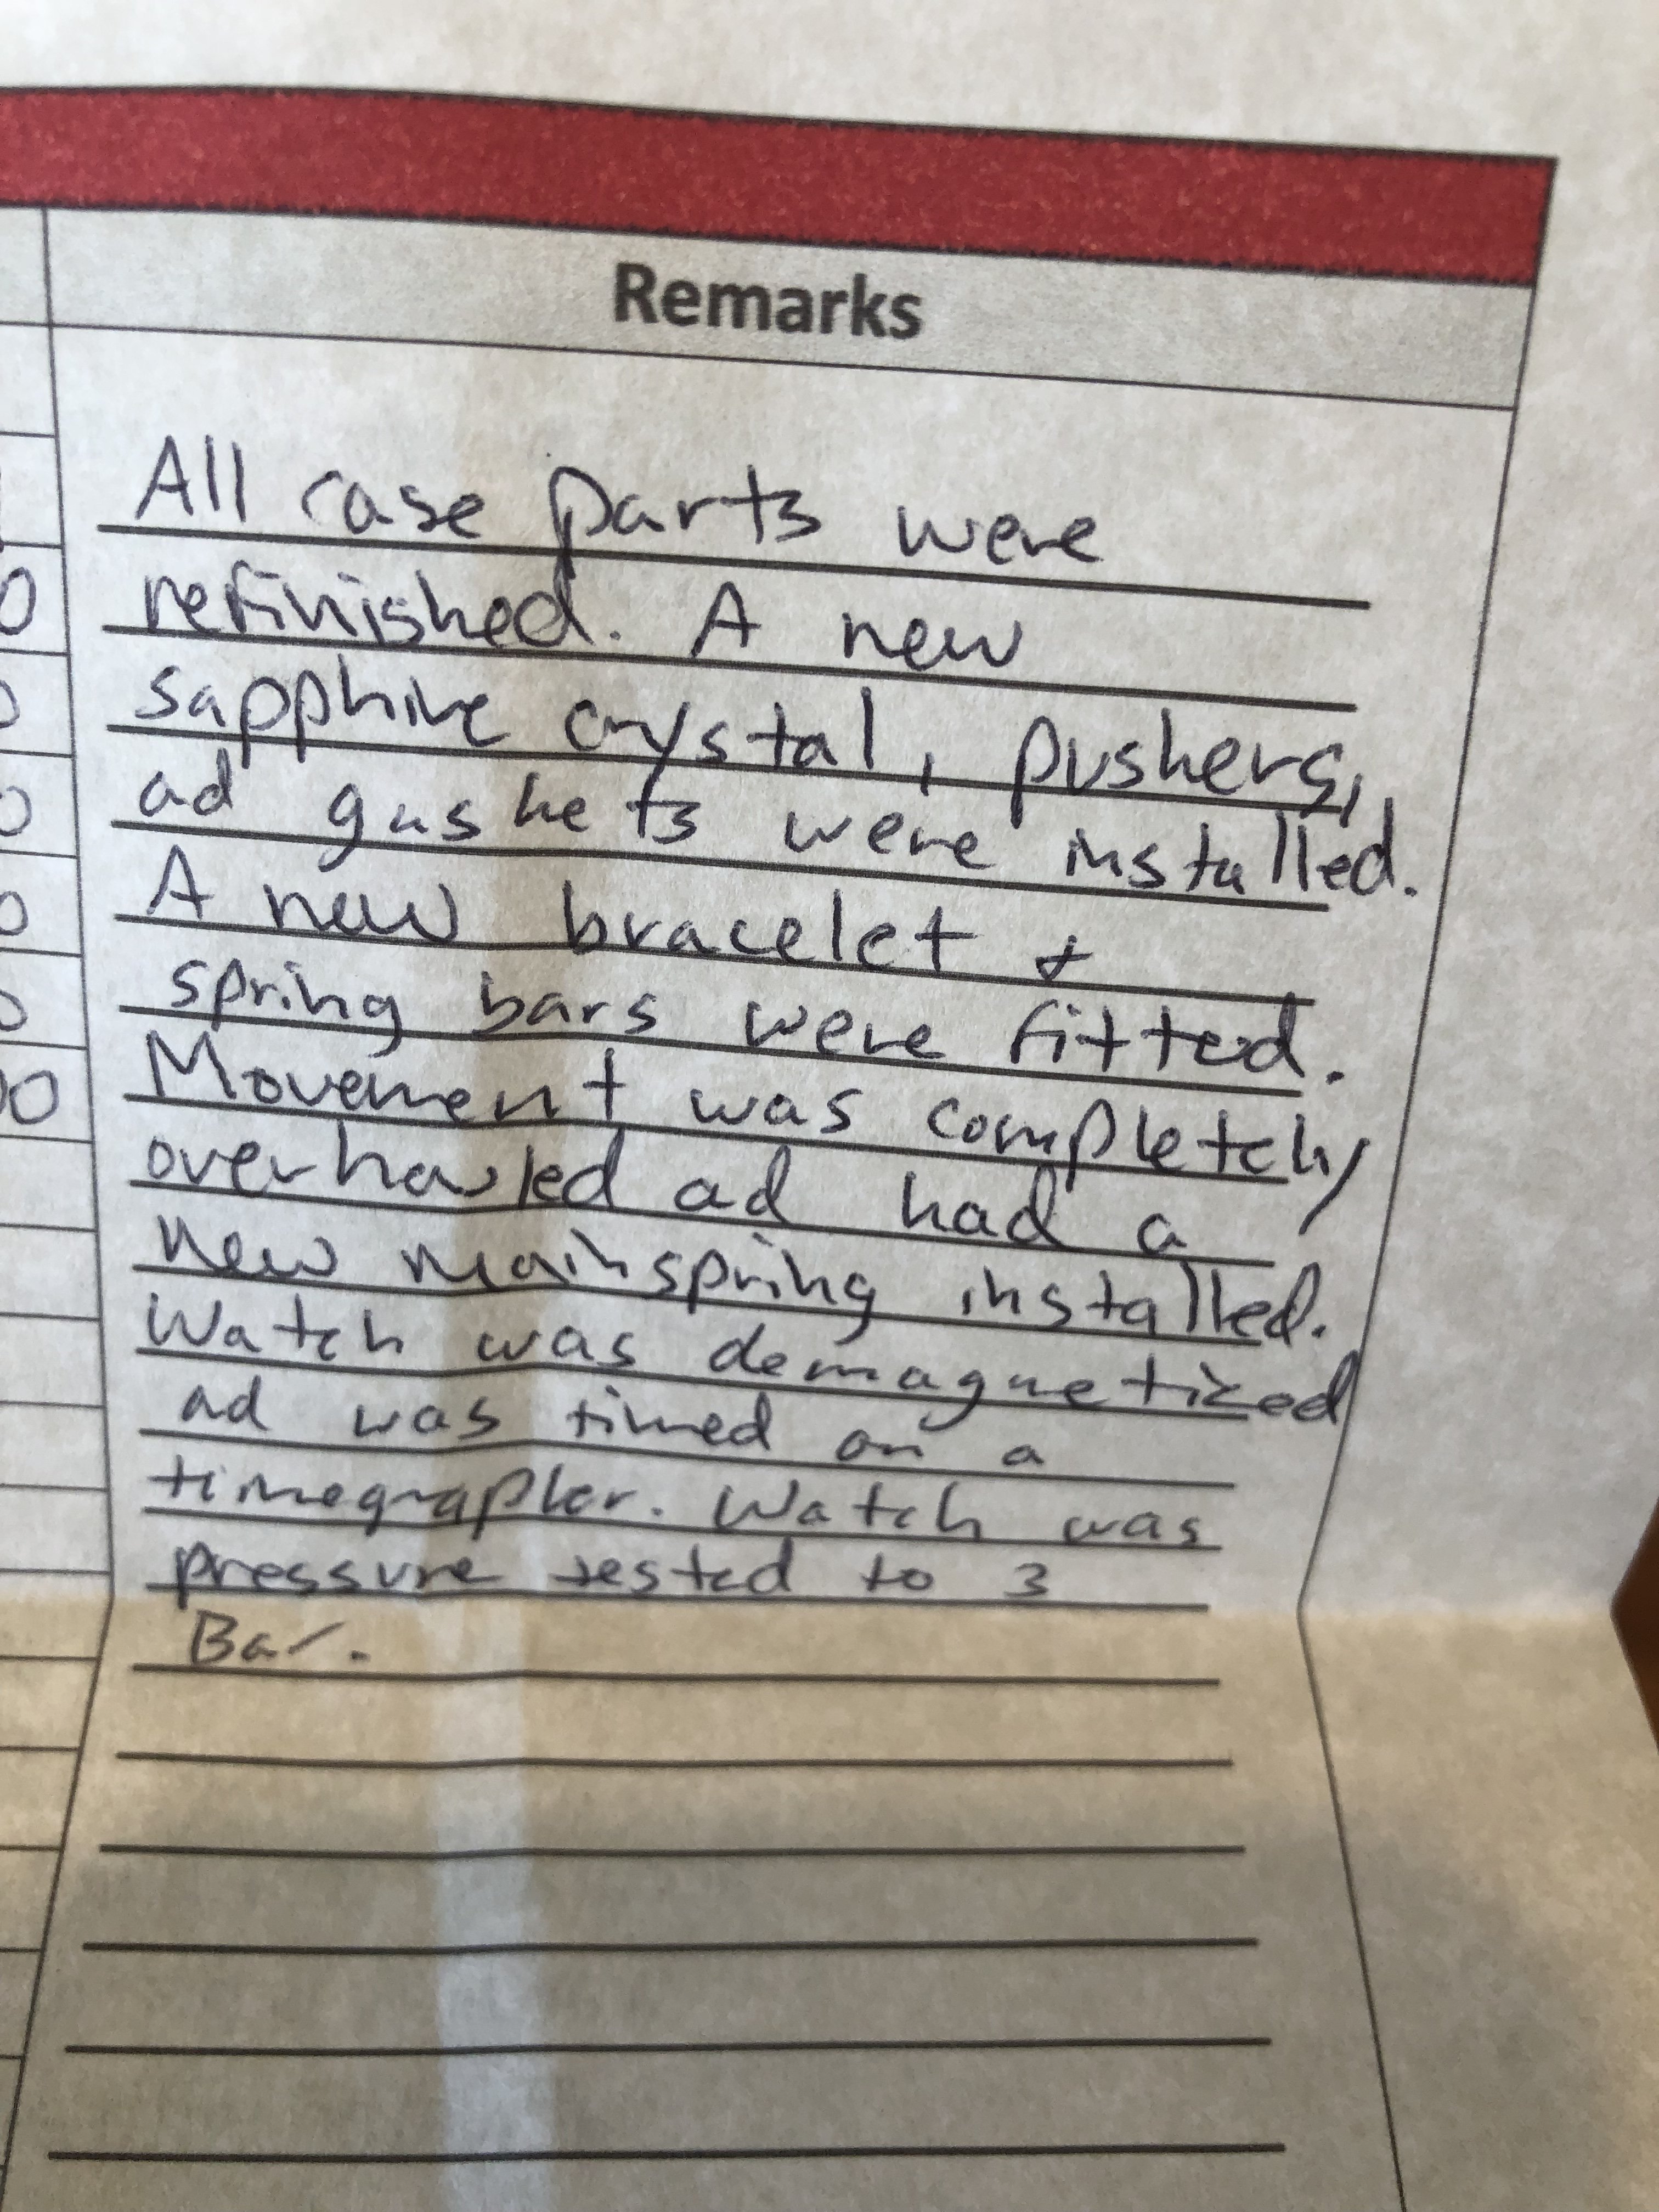 Remarks
All case parts were
refinished. A new
sapphire crystal, pushers,
ad gaskets were installed.
A new bracelet +
spring bars were fitted.
Movement was completely
overhauled ad had a
new mainspring installed.
Watch was demagnetized
ad was timed on a
timegrapler. Watch was
pressure tested to 3
Bar.